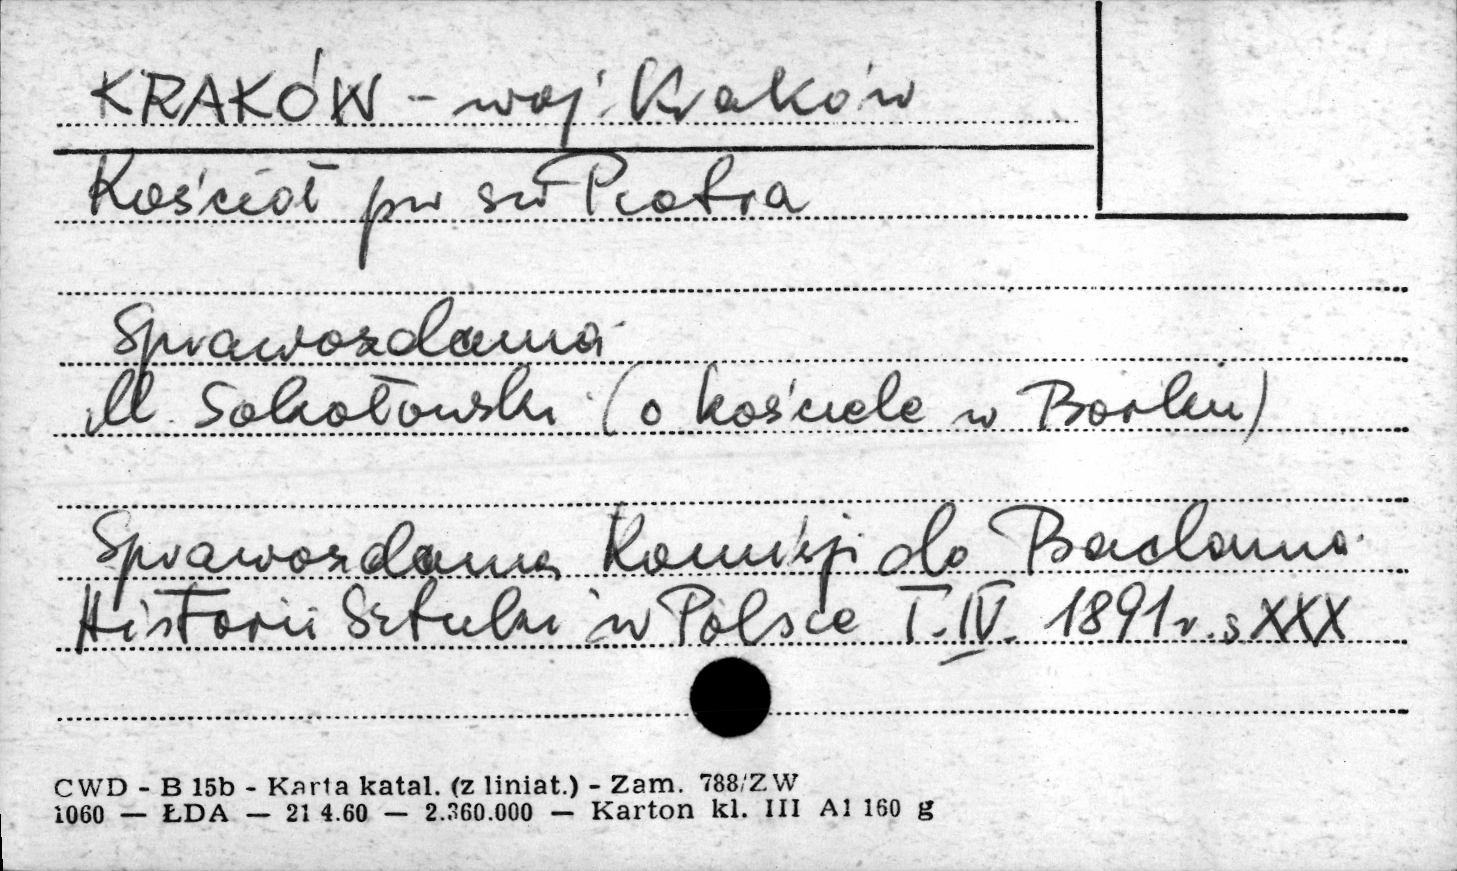 KRAKÓW - woj. Kraków
Kościół pw św Piotra
Sprawozdania
M. Sokołowski (o kościele w Borku)
Sprawozdania Komisji do Badania
Historii Sztuki w Polsce T. IV. 1891 r. s XXX
CWD - B 15b - Karta katal. (z liniat.) - Zam. 788/ZW
1060 — ŁDA — 21 4.60 — 2.360.000 — Karton kl. III A1 160 g